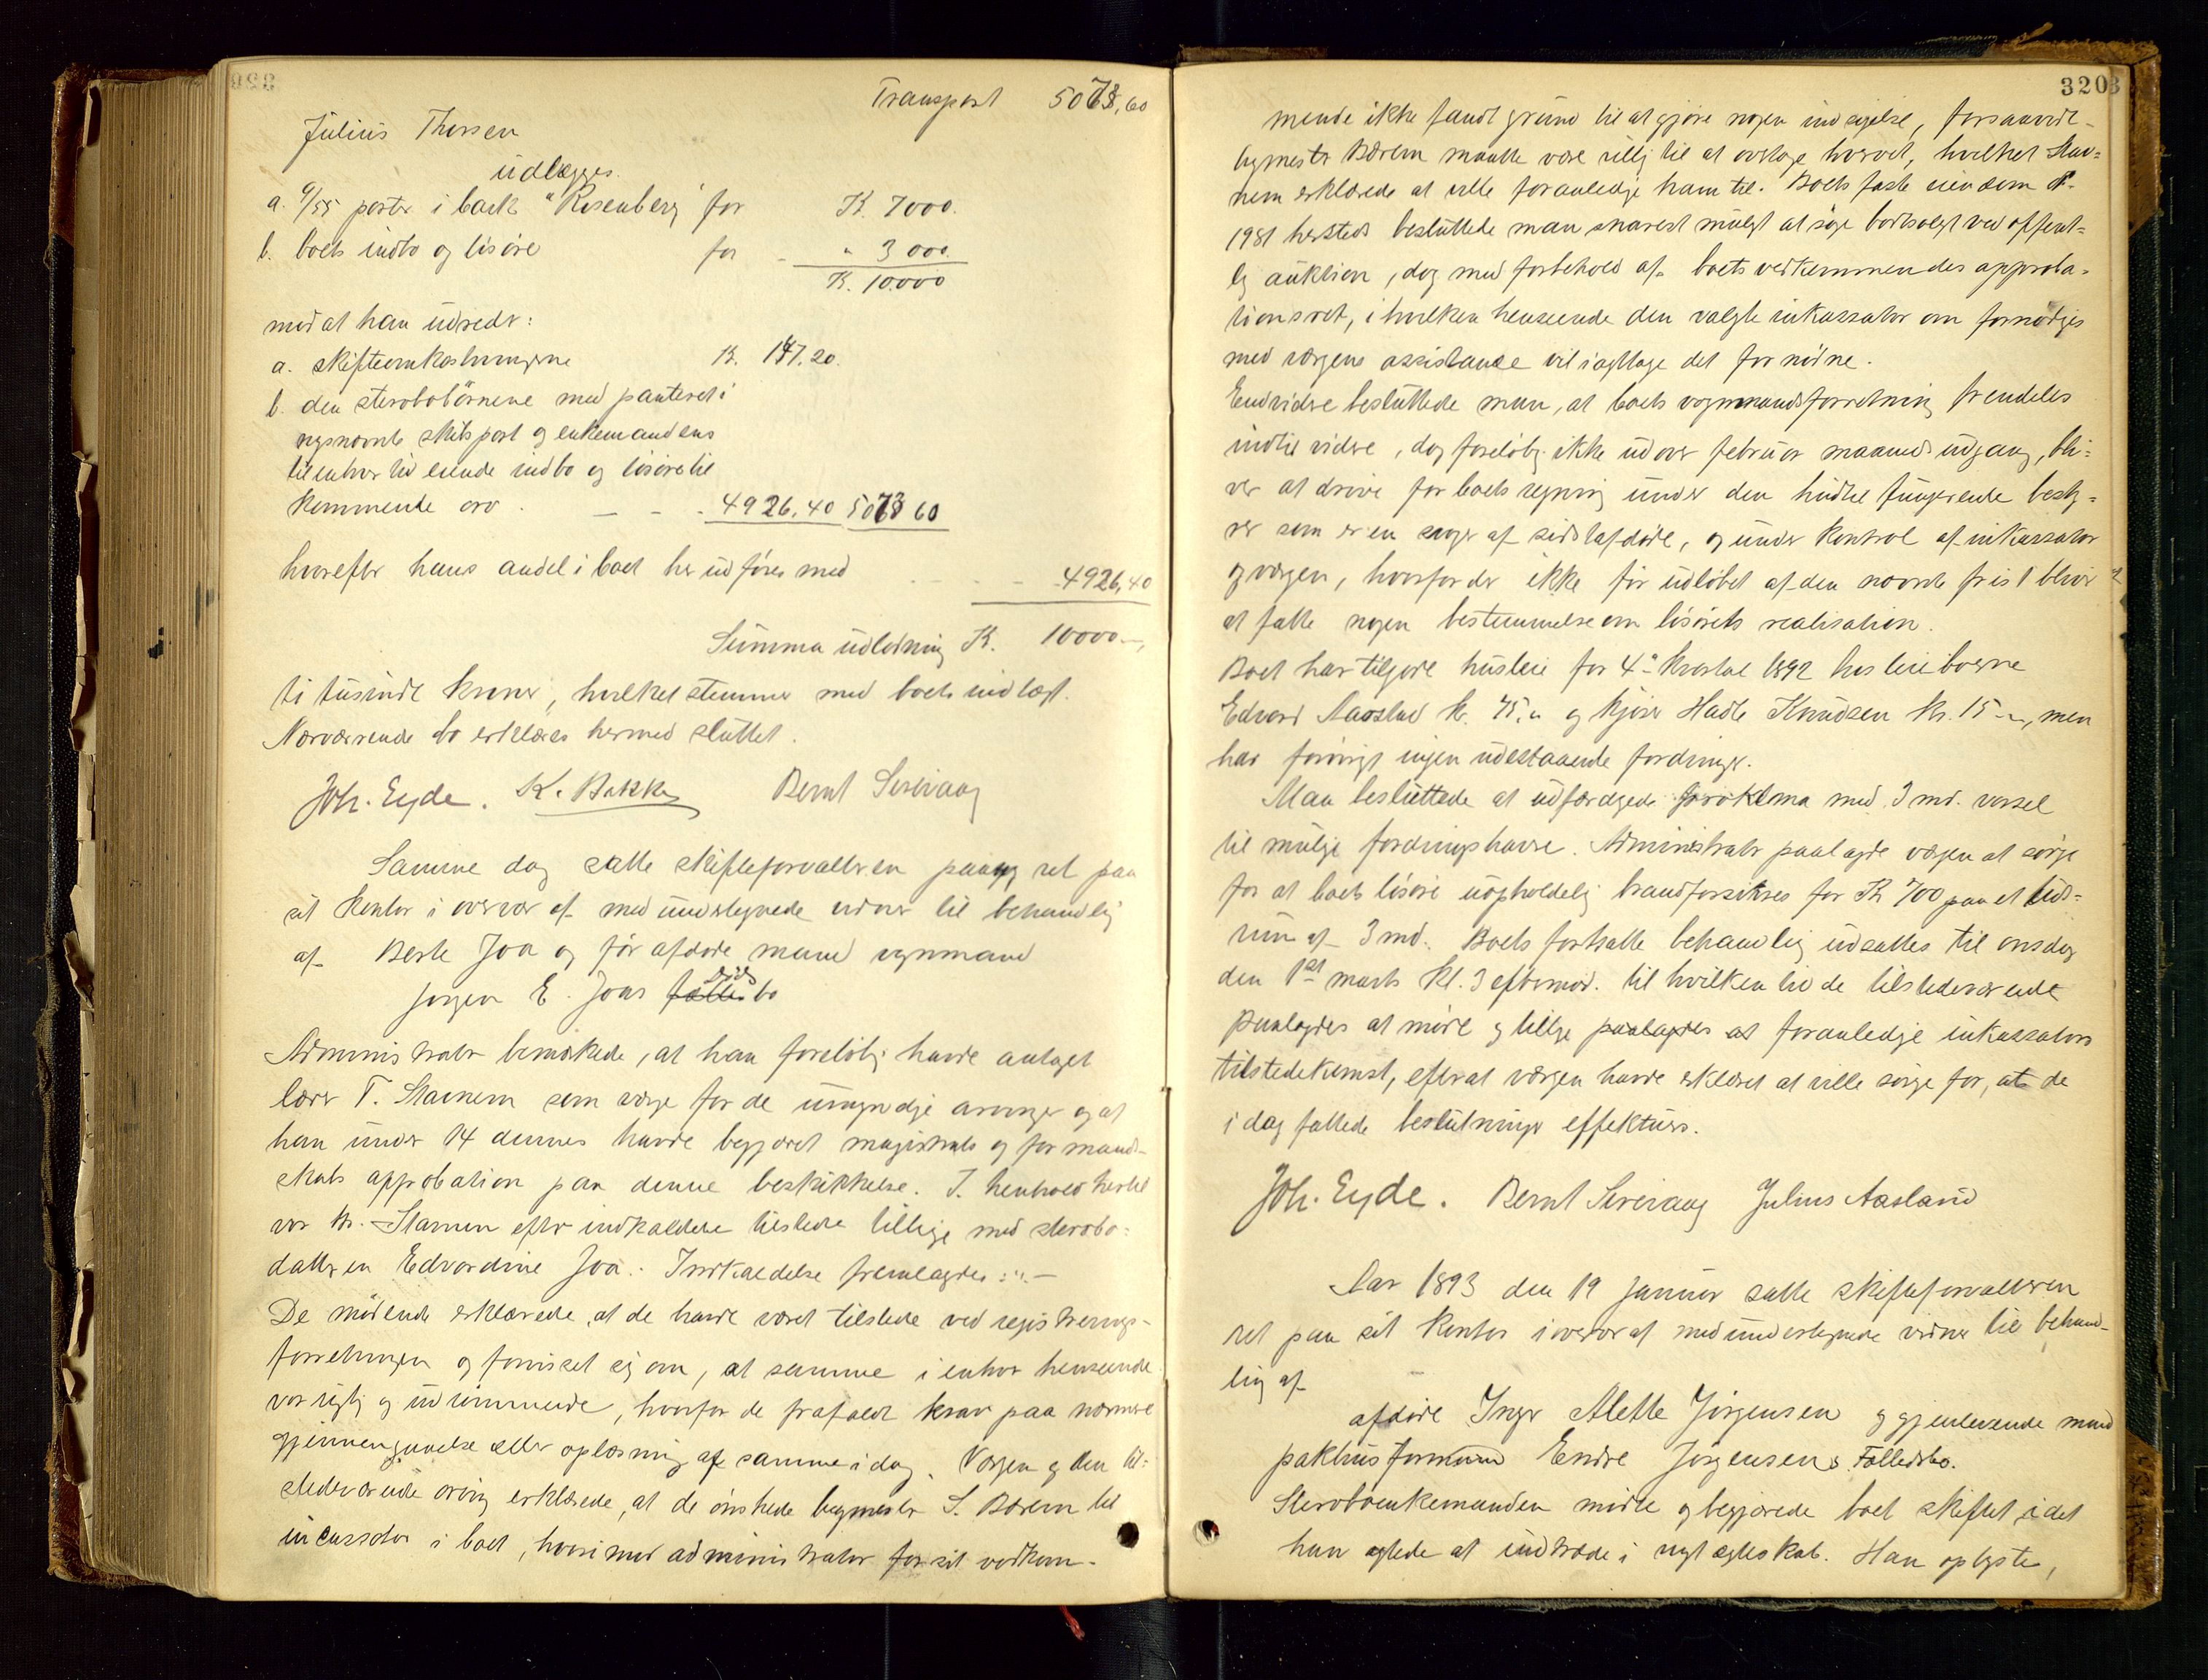 Transport 5073,60
Julius Thorsen
udlægges
a. 9/55 parter i bark "Rosenberg" for K. 7000.
b. boets indbo og løsøre for - " 3000.
K. 10.000
mod at han udreder:
a. skifteomkostningerne K. 147.20.
b. den sterbobørnene med panteret i
nysnævnte skibspart og enkemandens
til enhver tid eiende indbo og løsøre til
kommende arv . - - - 4926.40 5073 60
hvorefter hans andel i boet her udføres med - - - 4926,40
Summa udlodning K. 10000.-,
ti tusinde kroner, hvilket stemmer med boets indtægt.
Nærværende bo erklæres hermed sluttet.
Joh. Eyde. K. Bakke Bernt Sereivaag
Samme dag satte skifteforvalteren paany ret paa
sit kontor i overvær af medundertegnede vidner til behandling
af Berte Joa og før afdøde mand vognmand
Jørgen E. Joas fælles døds bo
Administrator bemærkede, at han foreløbig havde antaget
lærer T. Stavnem som værge for de umyndige arvinger og at
han under 14 dennes havde begjæret magistrats og formand-
skabs approbation paa denne beskikkelse. I henhold hertil
var hr. Stavnem efter indkaldelse tilstede tillige med sterbo-
datteren Edvardine Joa. Indkaldelse fremlagdes :": -
De mødende erklærede, at de havde været tilstede ved registrerings-
forretningen og forvisset sig om, at samme i enhver henseende
var rigtig og udtømmende, hvorfor de frafaldt krav paa nærmere
gjennemgaaelse eller oplæsning af samme i dag. Værgen og den til-
stedeværende arving erklærede, at de ønskede bygmester S. Bærem til
incassator i boet, hvorimod administrator for sit vedkom-
3203
mende ikke fandt grund til at gjøre nogen indsigelse, forsaavidt-
bygmester Bærem maatte være villig til at overtage hvervet, hvilket Stav-
nem erklærede at ville foranledige ham til. Boets faste eiendom #.
1981 hersteds besluttede man snarest muligt at søge bortsolgt ved offent-
lig auktion, dog med forbehold af boets vedkommendes approba-
tionsret, i hvilken henseende den valgte inkassator om fornødiges
med værgens assistance vil iagttage det fornødne.
Endvidere besluttede man, at boets vognmandsforretning fremdeles
indtil videre, dog foreløbig ikke udover februar maaneds udgang, bli-
ver at drive for boets regning under den hidtil fungerende besty-
rer som er en svoger af sidstafdøde, og under kontrol af inkassator
og værgen, hvorfor der ikke før udløbet af den nævnte frist bliver
at fatte nogen bestemmelse om løsørets realisation.
Boet har tilgode husleie for 4de kvartal 1892 hos leieboerne
Edvard Aarstad k. 75.- og kjører Hadle Knudsen kr. 15.-, men
har forøvrigt ingen udestaaende fordringer.
Man besluttede at udfærdige proklama med 3 md. varsel
til mulige fordringshavere. Administrator paalagde værgen at sørge
for at boets løsøre uopholdelig brandforsikres for K 700 paa et tids-
rum af 3 md. Boets fortsatte behandling udsattes til onsdag
den 1ste marts kl. 3 eftermid. til hvilken tid de tilstedeværende
paalagdes at møde og tillige paalagdes at foranledige inkassators
tilstedekomst, efter at værgen havde erklæret at ville sørge for, at de
i dag fattede beslutninger effektueres.
Joh. Eyde. Bernt Sereivaag Julius Aasland
Aar 1893 den 19 januar satte skifteforvalteren
ret paa sit kontor i overvær af medundertegnede vidner til behand-
ling af
afdøde Inger Alette Jørgensen og gjenlevende mand
pakhusformand Endre Jørgensens Fælledsbo.
Sterboenkemanden mødte og begjærede boet skiftet, idet
han agtede at indtræde i nyt ægteskab. Han oplyste,